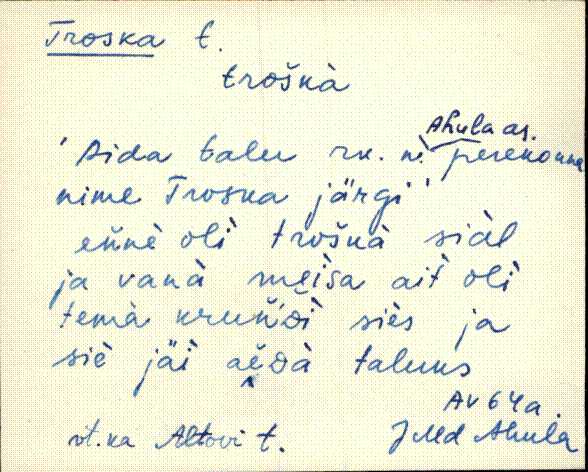 Troska t.
troškà
Ahula as.
'Aida talu rk. n. perekonna
nime Troska järgi'
eǹnè olì troškà siàl
ja vanà meìsa aìt olì
temà kruǹdì siès ja
siè jäì aèdà taluks
Av 64 a.
vt. ka Altovi t. JMd Ahula